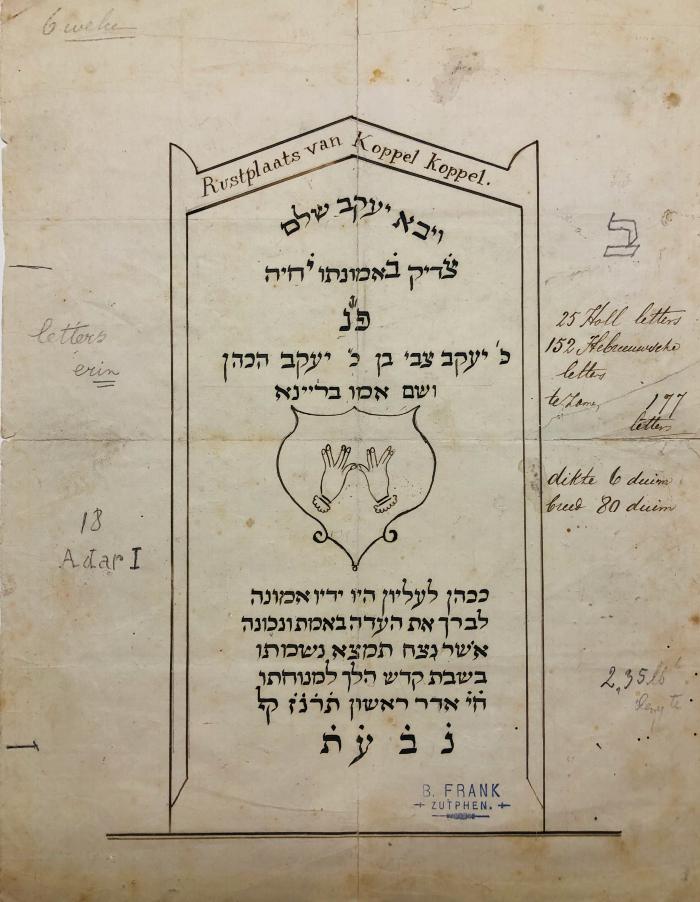 6 weken
Rustplaats van Koppel Koppel.
ויבא יעקב שלם
צׄדיק בׄאמונתו יׄחיה
פנ
כ׳ יעקב צבי בן כ׳ יעקב הכהן
ושם אמו בליינא
ב
25 Holl letters
152 Hebreeuwsche
letters
te zamen 177
letters
letters
erin
dikte 6 duim
breed 80 duim
18
Adar I
ככהן לעליון היו ידיו אמונה
לברך את העדה באמת ונכונה
אשר נצח תמצא נשמתו
בשבת קדש הלך למנוחתו
חׄיׄ אדר ראשון תׄרׄנׄזׄ לק
נׄ בׄ עׄ תׄ
2,35
lengte
B. FRANK
ZUTPHEN.